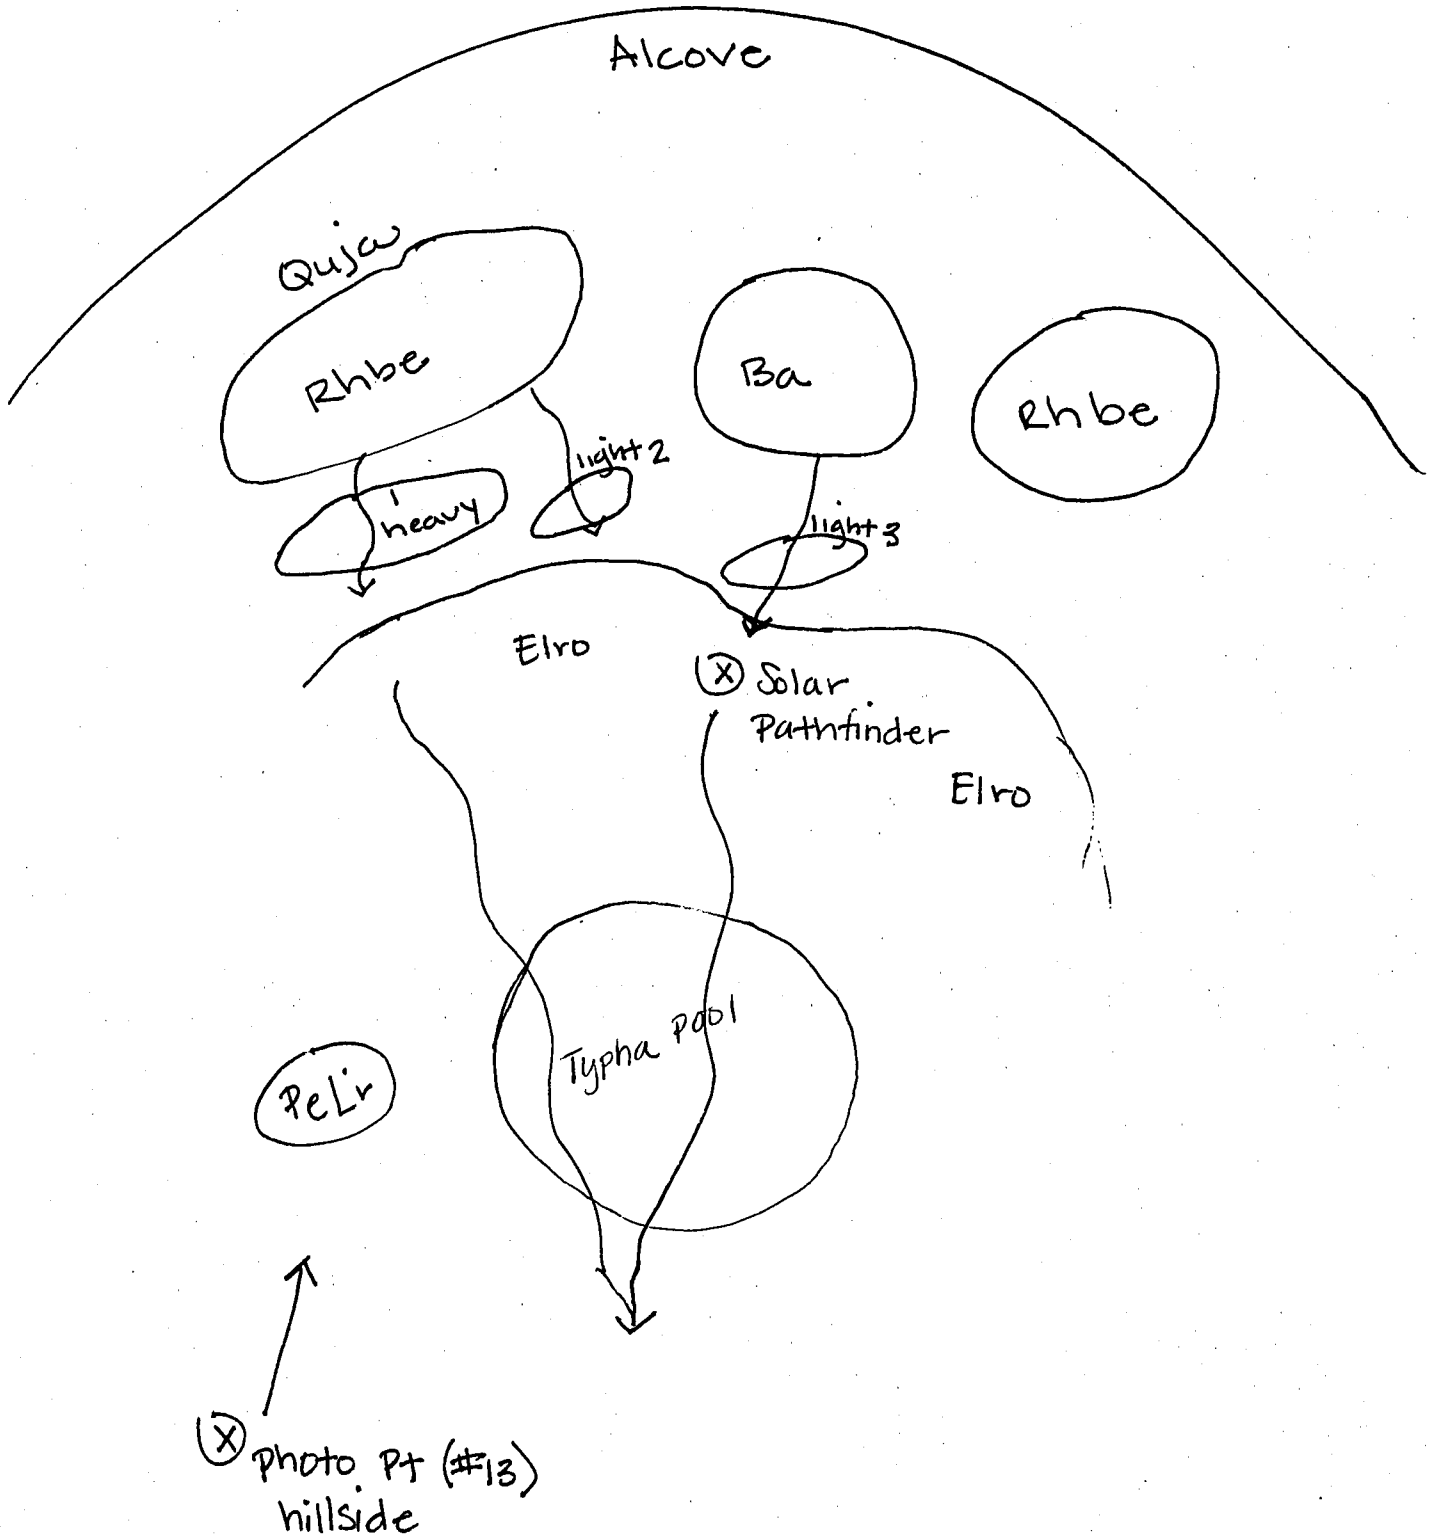 Alcove
Quja
Rhbe
Ba
Rhbe
light 2
1
heavy
light 3
Elro
X Solar
Pathfinder
Elro
Typha Pool
PeLir
X Photo Pt (#13)
hillside